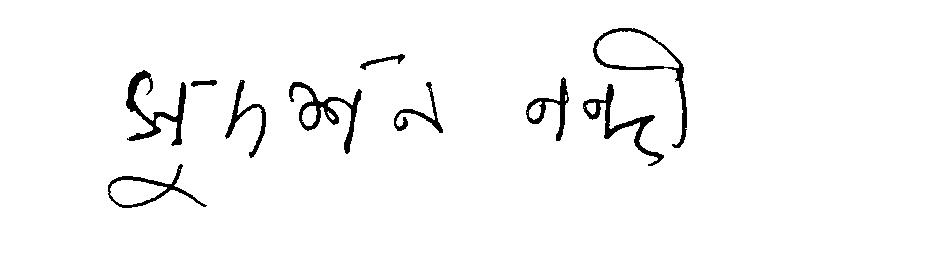 সুদর্শন নন্দী